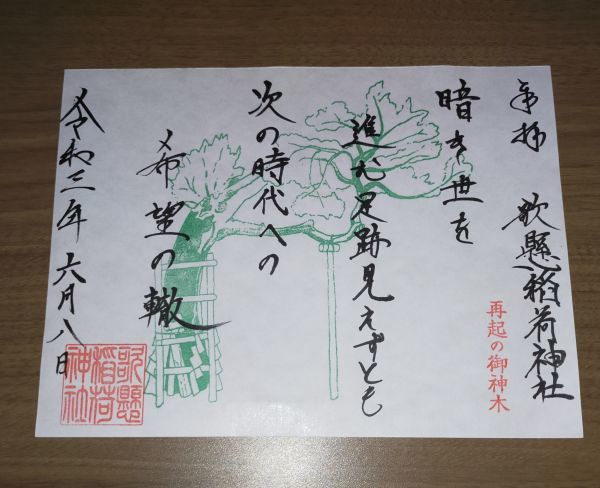 奉拝 歌懸稲荷神社
再起の御神木
暗き世を
進む足跡見えずとも
次の時代への
希望の轍
令和三年 六月八日
歌懸
稲荷
神社